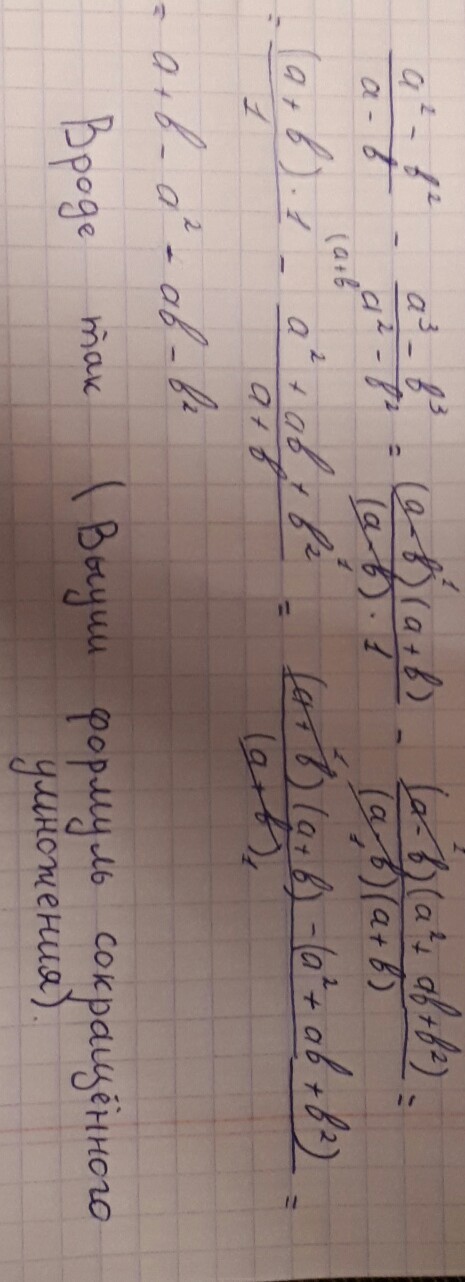 (a² - b²)/(a - b) - (a³ - b³)/(a² - b²) = ((a - b)¹(a + b))/((a - b) · 1) - ((a - b)¹(a² + ab + b²))/((a - b)₁(a + b)) =
= ((a + b) · 1)/1 - (a² + ab + b²)/(a + b) ^(a+b ^1 = ((a + b)¹(a + b) - (a² + ab + b²))/((a + b)₁) =
= a + b - a² - ab - b²
Вроде так (Выучи формуль сокращённого
умножения).